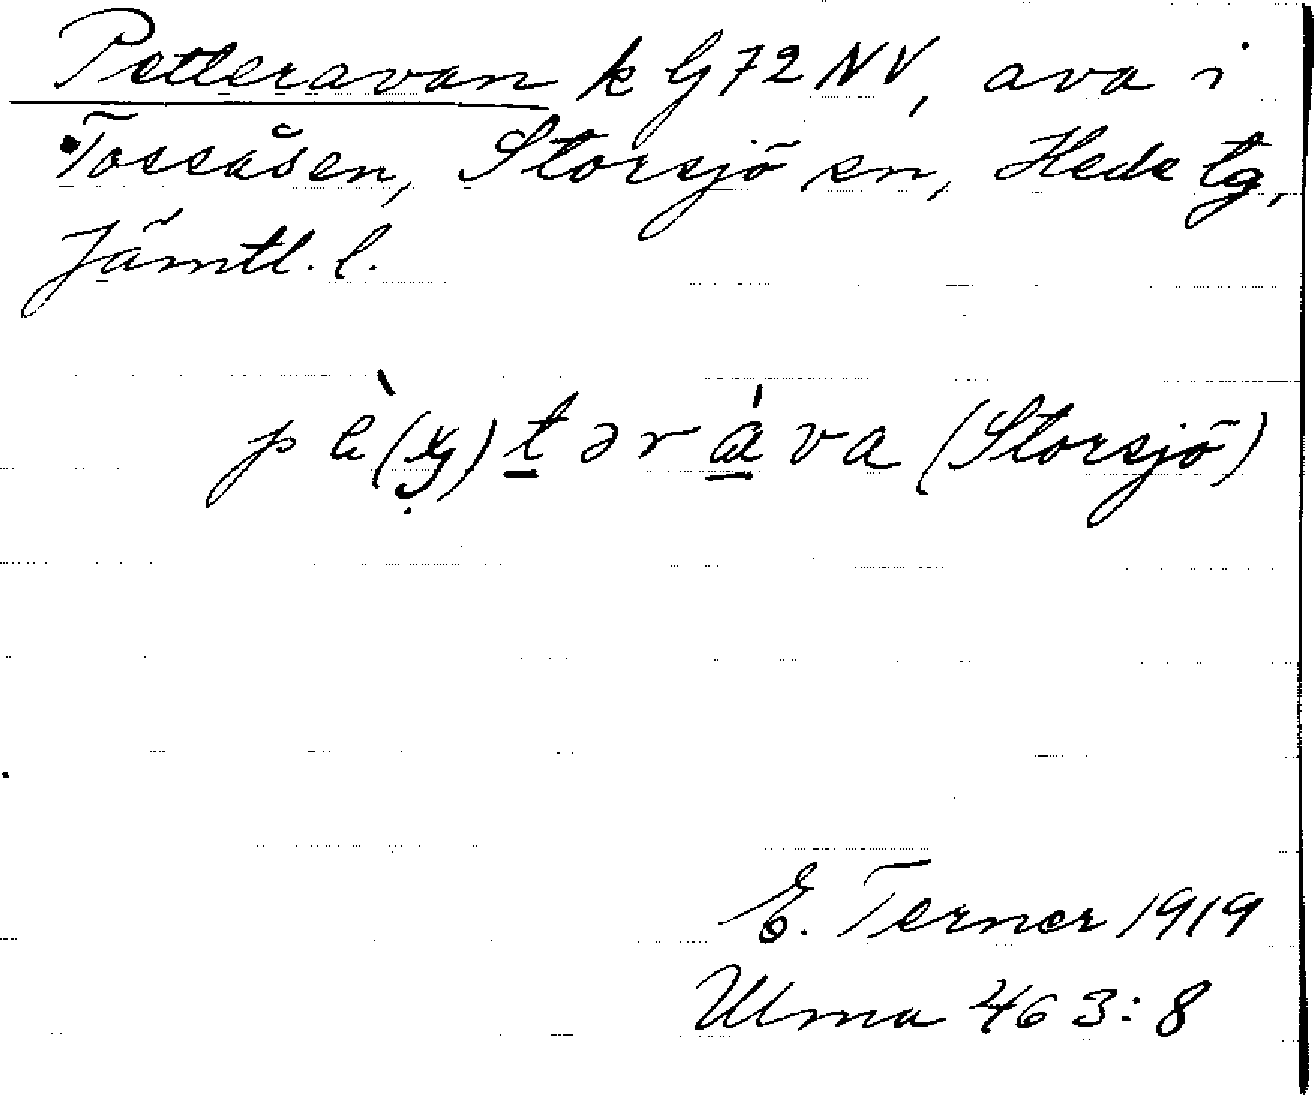 Petteravan k G 72 NV, ava i
Tossåsen, Storsjö sn, Hede tg,
Jämtl. l.
(Storsjö)
E. Terner 1919
Ulma 463:8